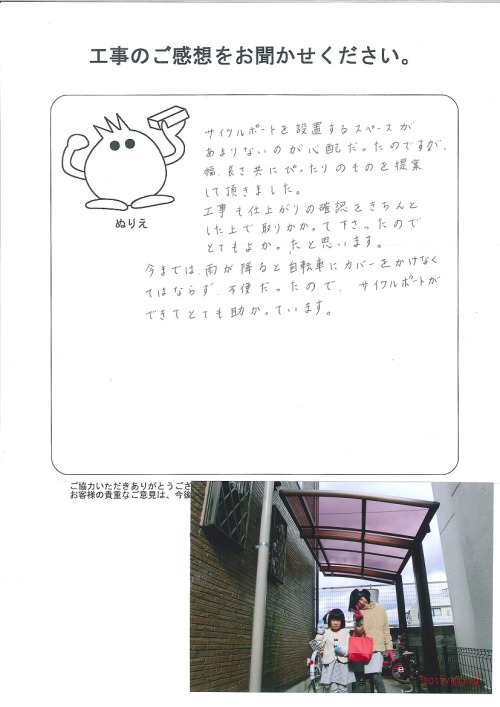 工事のご感想をお聞かせください。
サイクルポートを設置するスペースが
あまりないのが心配だったのですが、
幅、長さ共にぴったりのものを提案
して頂きました。
工事も仕上がりの確認をきちんと
した上で取りかかって下さったので
とてもよかったと思います。
ぬりえ
今までは、雨が降ると自転車にカバーをかけなく
てはならず、不便だったので、サイクルポートが
できてとても助かっています。
ご協力いただきありがとうござ
お客様の貴重なご意見は、今後